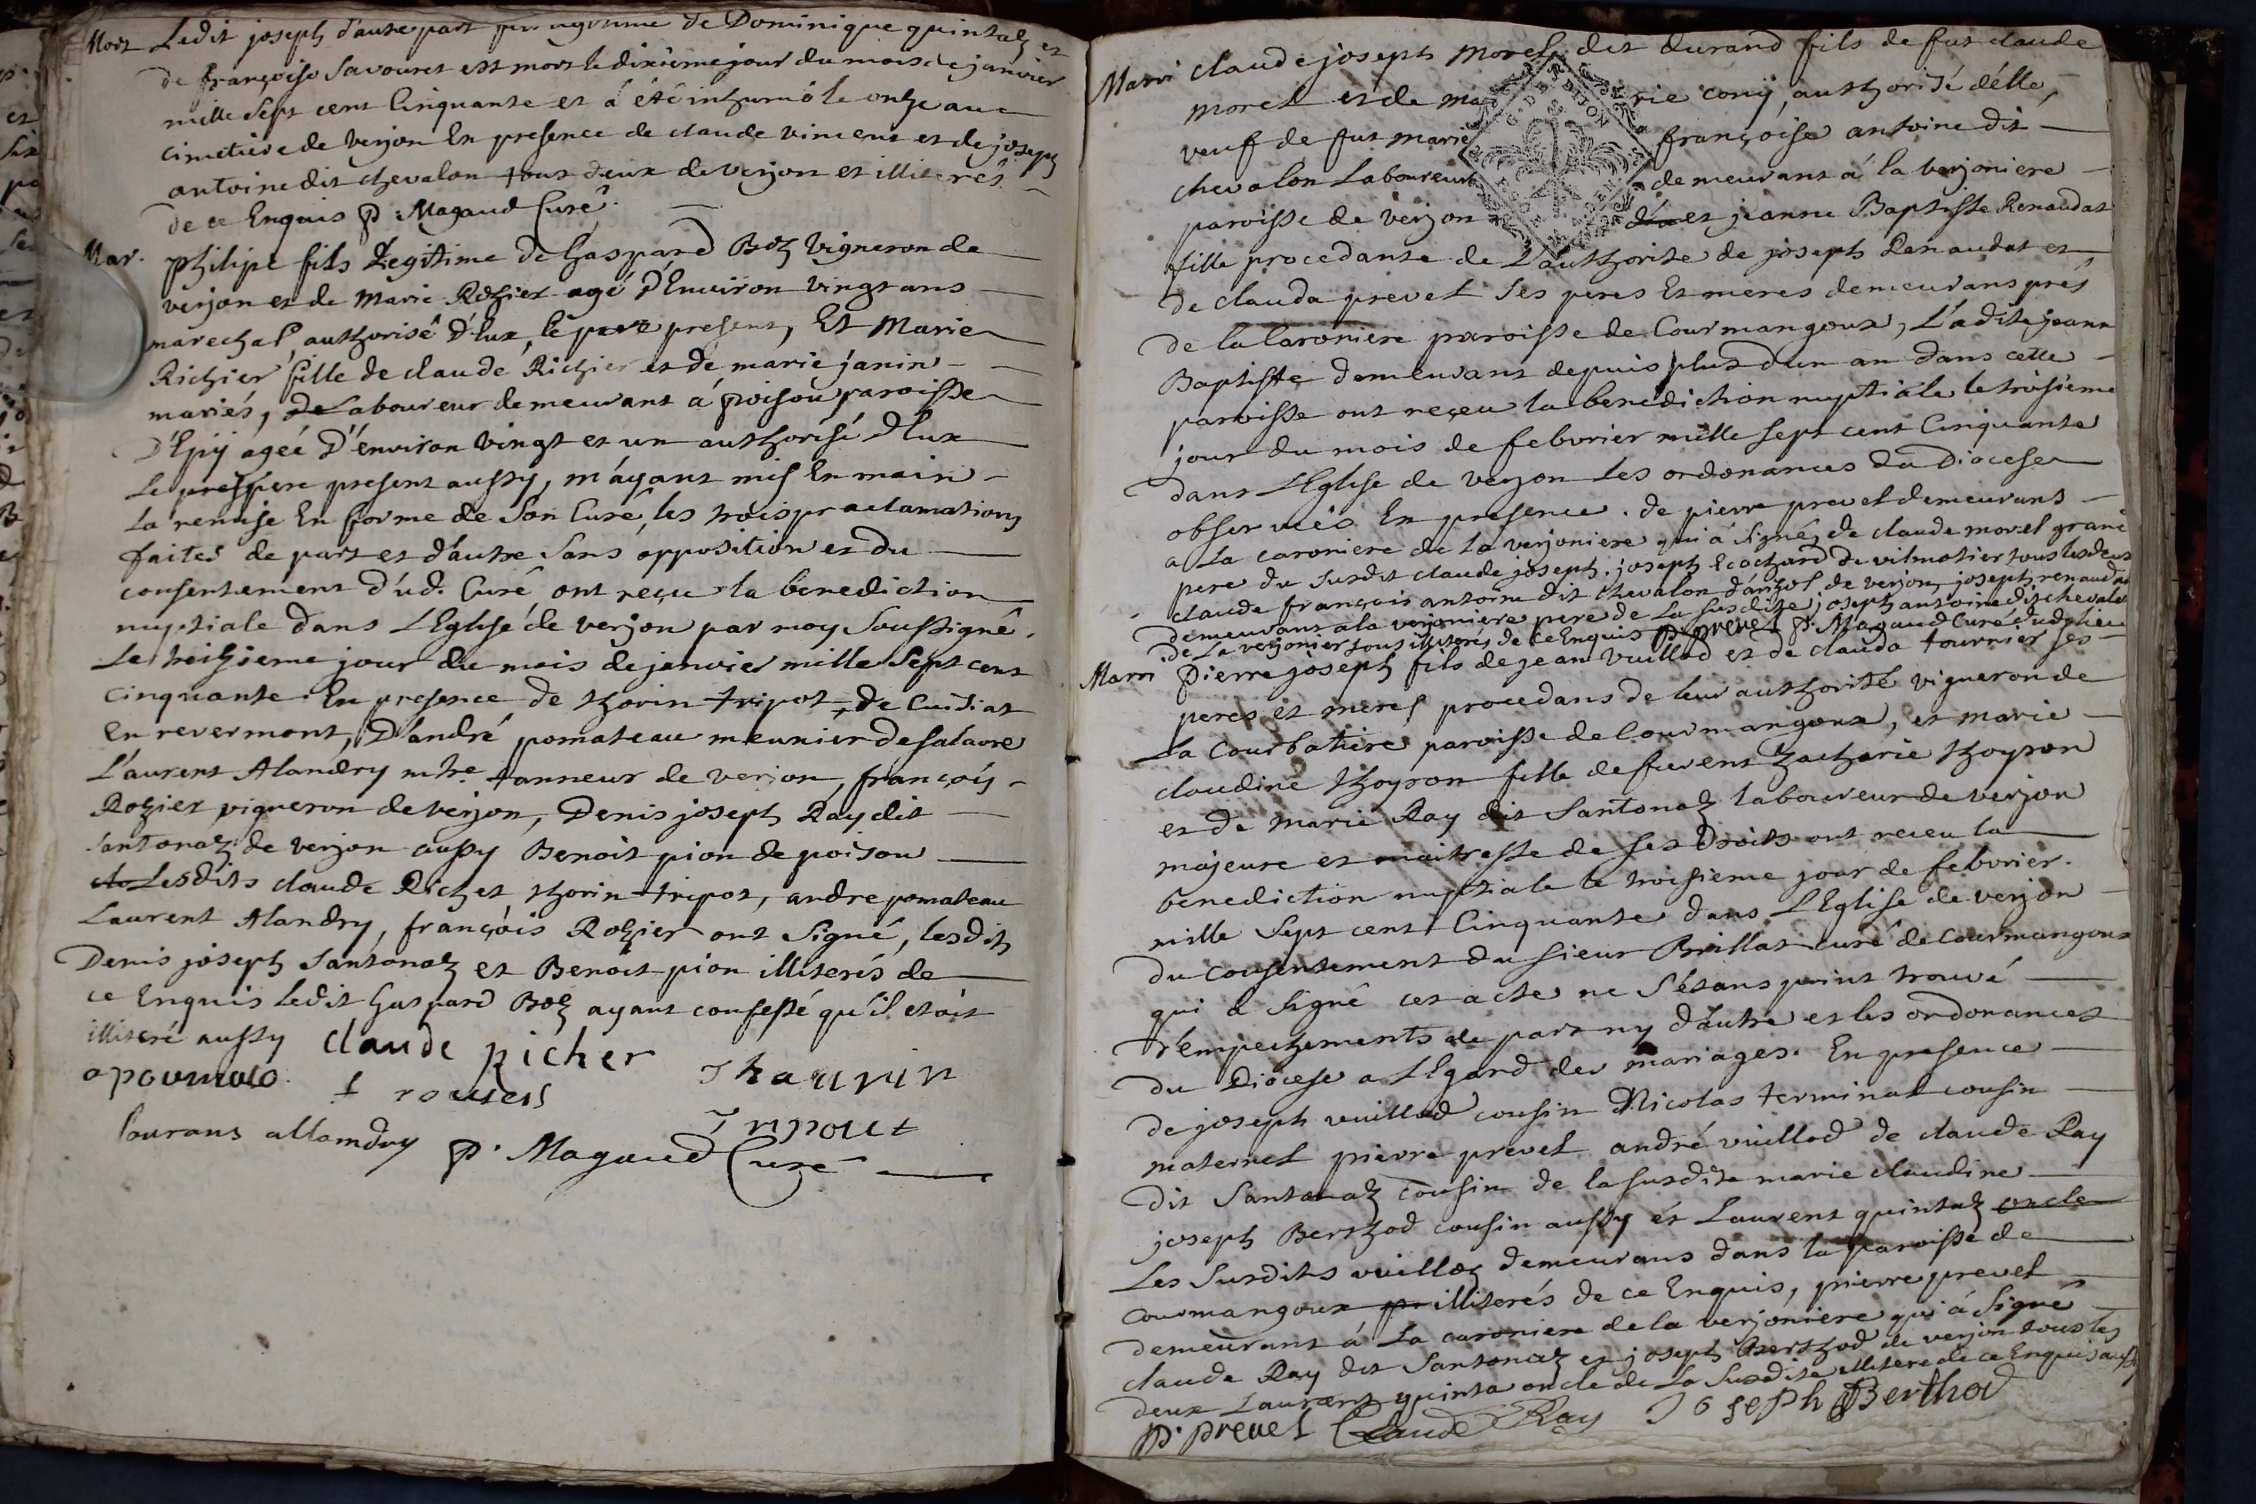 Mort Ledit joseph d'autre part de Dominique quintaz et
de françoise Savouret est mort le dixieme jour du mois de janvier
mille sept cent Cinquante et á été inhumé le onze au
cimetiere de verjon En presence de claude vincent et de joseph
antoine dit chevalon tous deux de verjon et illiterés
de ce Enquis p. Magaud Curé.
Mar. philipe fils Legitime de Gaspard Boz Vigneron de
verjon et de Marie Rozier agé D'Environ vingt ans
marechal authorisé D'Eux, le pere present, Et Marie
Richier fille de claude Richier et de marie janin
mariés, de Laboureur demeurant á poisou paroisse
D'Epij agée D'environ vingt et un authorisé D'Eux
Le pere present aussy, m'áyant mis En main
la remise En forme de Son Curé, les trois proclamations
faites de part et d'autre Sans opposition et du
consentement d'ud. Curé ont reçu la benediction
nuptiale dans L'Eglise de verjon par moy Soussigné
Le treizieme jour du mois de janvier mille Sept cent
cinquante. En presence de thorin tripot, de Cuisiat
En revermont, D'andré pomateau meunier de salavre
L'aurent Alandry mtre tanneur de verjon, françois
Rozier vigneron de verjon, Denis joseph Ray dit
santonaz de verjon aussy Benoit pion de poisou
Lesdits claude Richer, thorin tripot, andre pomateau
Laurent Alandry, françois Rozier ont Signé, lesdits
Denis joseph Santonaz et Benoit pion illiterés de
ce Enquis Ledit Gaspard Boz ayant confessé qu'il etoit
illiteré aussy claude richer Thaurin
a
f
Tripout
lourans allamdry p. Magaud Curé
Marri claude joseph Morel dit durand fils de fut claude
morel et de ma rie conij, authorisé délle,
veuf de fut marie françoise antoine dit
chevalon Laboureur demeurant á la verjoniere
paroisse de verjon et jeanne Baptiste Renaudat
fille procedante de L'authorite de joseph Renaudat et
de clauda prevel Ses peres Et meres demeurans prés
de la Caroniere paroisse de Courmangoux, L'adite jeann
Baptiste demeurant depuis plus d'un an dans cette
paroisse ont reçeu la benediction nuptiale le troisieme
jour du mois de febvrier mille sept cent Cinquante
dans L'Eglise de verjon les ordonances du Diocese
observées En presence. de pierre prevel demeurans
a La caroniere de la verjoniere qui á Signé, de claude morel grand
pere du Susdit claude joseph. joseph Ecochard de vilmotier tous les deux
claude françois antoine dit chevalon d'arzol de verjon, joseph renaudat
demeurant a la verjoniere pere de La Susdite, joseph antoine dit chevalon
de La verjonier tous illiterés de ce Enquis p. prevel p. Magaud Curé dudt lieu
Marri Pierre joseph fils de jean Vuillod et de clauda tournier ses
peres et meres procedans de leur authorité vigneron de
La Courbatiere paroisse de Courmangoux, et marie
claudine thoyron fille de fuerent Zacharie thoyron
et de marie Ray dit Santonaz laboureur de verjon
majeure et maitresse de ses Droits ont reçeu la
benediction nuptiale le troisieme jour de febvrier
mille Sept cent Cinquante dans L'Eglise de verjon
du consentement du sieur Brillat curé de Courmangoux
qui a Signé cet acte ne S'étans point trouvé
d'Empechements de part ny d'autre et les ordonances
du Diocese a L'Egard des mariages. En presence
de joseph vuillod cousin Nicolas terminal cousin
maternel pierre prevel andré vuillod de claude Ray
dit Santonaz cousin de la susdite marie claudine
joseph Berthod cousin aussy et Laurent quintaz oncle
Les Susdits vuilloz demeurans dans la paroisse de
courmangoux illiterés de ce Enquis, pierre prevel
demeurant á La caroniere de la verjoniere qui á Signé
claude Ray dit Santonaz et joseph Berthod de verjon tous les
deux Laurent quinta oncle de La Susdite illiteré de ce Enquis aussy
p. prevel Claude Ray Joseph Berthod